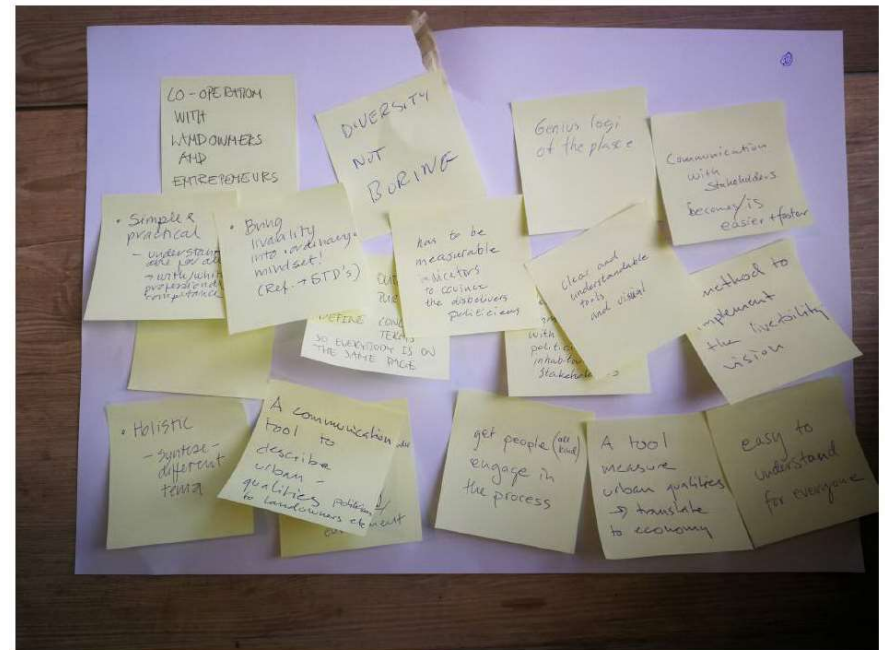 CO-OPERATION
WITH
LANDOWNERS
AND
ENTREPENEURS
DIVERSITY
NOT
BORING
Genius logi
of the place
Communication
with
Stakeholders
becomes/is
easier + faster
• Simple &
practical
- understan
professional
• Bring
livability
into "ordinary"
mindset!
(Ref. → GTD's)
has to be
measurable
indicators
to covince
the disbelivers
politicians
clear and
understandable
tools
and visual
method to
implement
the livebility
vision
DEFINE
TERMS
SO EVERYBODY IS ON
THE SAME PAGE
with
politic
inhabit
Stakehol
• Holistic
- syntese -
different
tema
A communication
tool to
describe
urban -
qualities
to landowners
element
get people (all kind)
engage in
the process
A tool
measure
urban qualities
→ translate
to economy
easy to
understand
for everyone